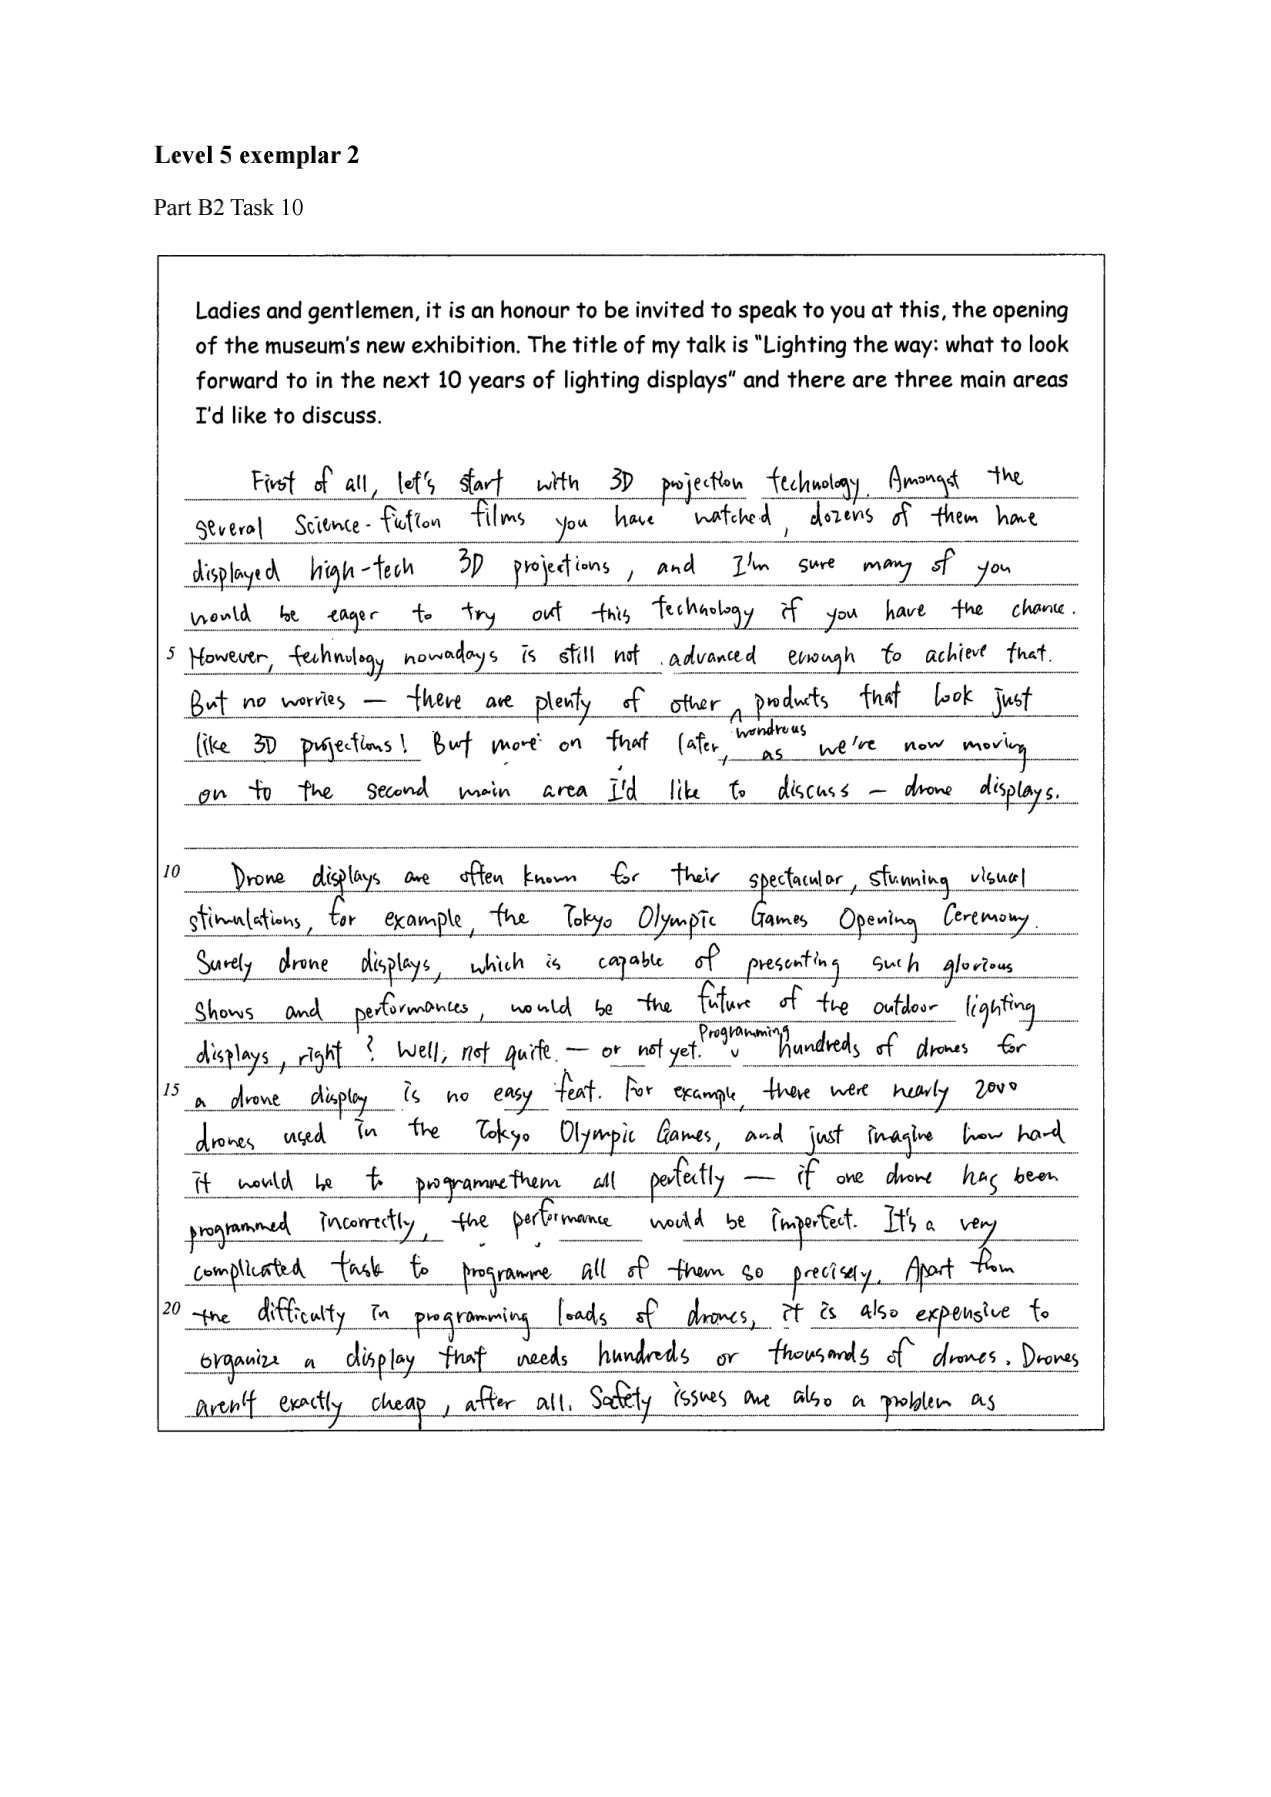 Level 5 exemplar 2
Part B2 Task 10
Ladies and gentlemen, it is an honour to be invited to speak to you at this, the opening
of the museum's new exhibition. The title of my talk is "Lighting the way: what to look
forward to in the next 10 years of lighting displays" and there are three main areas
I'd like to discuss.
First of all, let's start with 3D projection technology. Amongst the
several Science-fiction films you have watched, dozens of them have
displayed high-tech 3D projections, and I'm sure many of you
would be eager to try out this technology if you have the chance.
5 However, technology nowadays is still not advanced enough to achieve that.
But no worries — there are plenty of other wondrous products that look just
like 3D projections! But more on that later, as we're now moving
on to the second main area I'd like to discuss — drone displays.
10 Drone displays are often known for their spectacular, stunning visual
stimulations, for example, the Tokyo Olympic Games Opening Ceremony.
Surely drone displays, which is capable of presenting such glorious
shows and performances, would be the future of the outdoor lighting
displays, right? Well, not quite — or not yet. Programming hundreds of drones for
15 a drone display is no easy feat. For example, there were nearly 2000
drones used in the Tokyo Olympic Games, and just imagine how hard
it would be to programme them all perfectly — if one drone has been
programmed incorrectly, the performance would be imperfect. It's a very
complicated task to programme all of them so precisely. Apart from
20 the difficulty in programming loads of drones, it is also expensive to
organize a display that needs hundreds or thousands of drones. Drones
aren't exactly cheap, after all. Safety issues are also a problem as